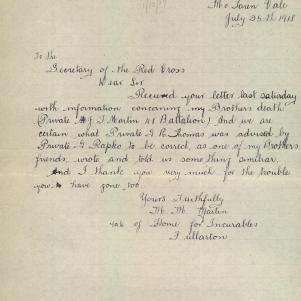 McLaren Vale
July 25th 1918
To the
Secretary of the Red Cross
Dear Sir
Received your letter last saturday
with information concerning my Brothers death
(Private J Martin 48 Battalion) and we are
certain what Private G R Thomas was advised by
Private G Rapko to be correct, as one of my Brothers
friends, wrote and told us something similiar.
And I thank you very much for the trouble
you have gone too
Yours Faithfully
M. M. Martin
late of Home for Incurables
Fullarton